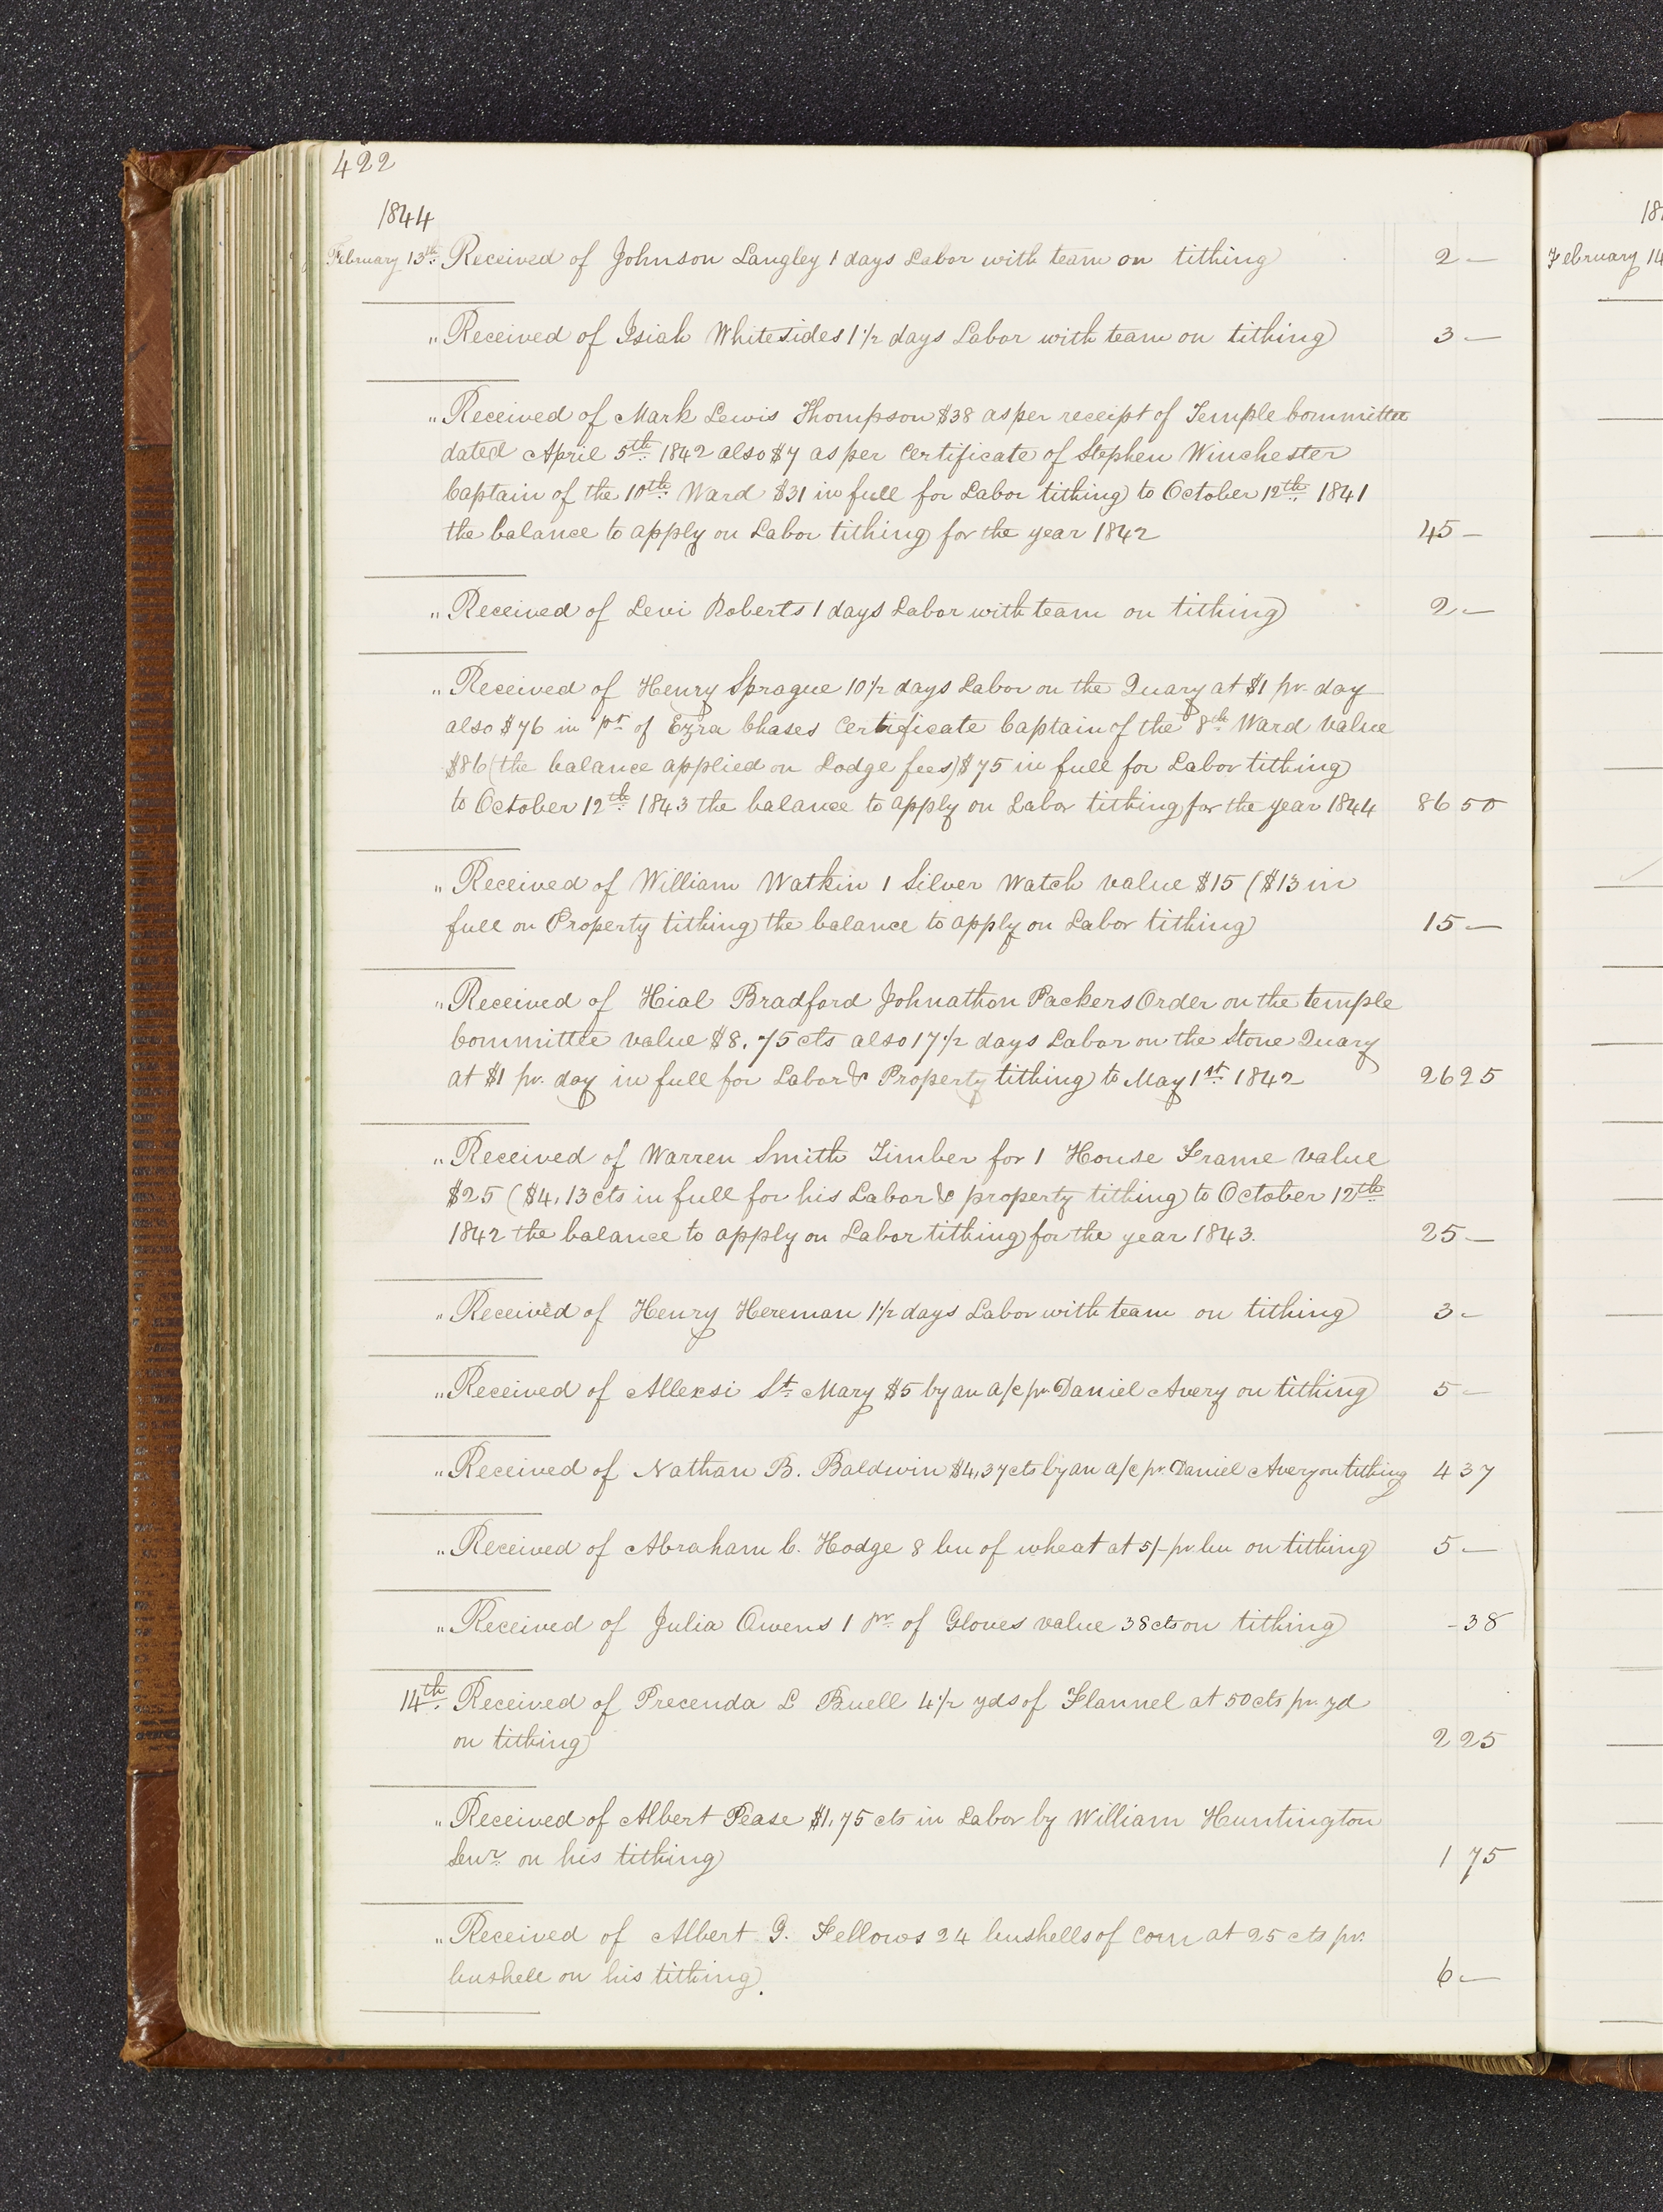 422
1844
February 13th Received of Johnson Langley 1 days Labor with team on tithing 2 —
" Received of Isiah Whitesides 1 1/2 days Labor with team on tithing 3 —
" Received of Mark Lewis Thompson $38 as per receipt of Temple Committee
dated April 5th 1842 also $7 as per Certificate of Stephen Winchester
Captain of the 10th Ward $31 in full for Labor tithing to October 12th 1841
the balance to apply on Labor tithing for the year 1842 45 —
" Received of Levi Roberts 1 days Labor with team on tithing 2 —
" Received of Henry Sprague 10 1/2 days Labor on the Quary at $1 pr. day
also $76 in pt of Ezra Chases Certificate Captain of the 8th Ward value
$86 (the balance applied on Lodge fees) $75 in full for Labor tithing
to October 12th 1843 the balance to apply on Labor tithing for the year 1844 86 50
" Received of William Watkin 1 Silver Watch value $15 ($13 in
full on Property tithing) the balance to apply on Labor tithing 15 —
" Received of Hial Bradford Johnathon Packers Order on the temple
Committee value $8,75 cts also 17 1/2 days Labor on the Stone Quary
at $1 pr. day in full for Labor & Property tithing to May 1st 1842 26 25
" Received of Warren Smith Timber for 1 House Frame value
$25 ($4,13 cts in full for his Labor & property tithing) to October 12th
1842 the balance to apply on Labor tithing for the year 1843. 25 —
" Received of Henry Hereman 1 1/2 days Labor with team on tithing 3 —
" Received of Allexsi St. Mary $5 by an a/c pr Daniel Avery on tithing 5 —
" Received of Nathan B. Baldwin $4,37 cts by an a/c pr. Daniel Avery on tithing 4 37
" Received of Abraham C. Hodge 8 bu of wheat at 5/- pr. bu on tithing 5 —
" Received of Julia Owens 1 pr. of Gloves value 38 cts on tithing - 38
14th Received of Precenda L Buell 4 1/2 yds of Flannel at 50 cts pr. yd
on tithing 2 25
" Received of Albert Pease $1,75 cts in Labor by William Huntington
Senr. on his tithing 1 75
" Received of Albert G. Fellows 24 bushells of Corn at 25 cts pr.
bushell on his tithing. 6 —
18
February 14